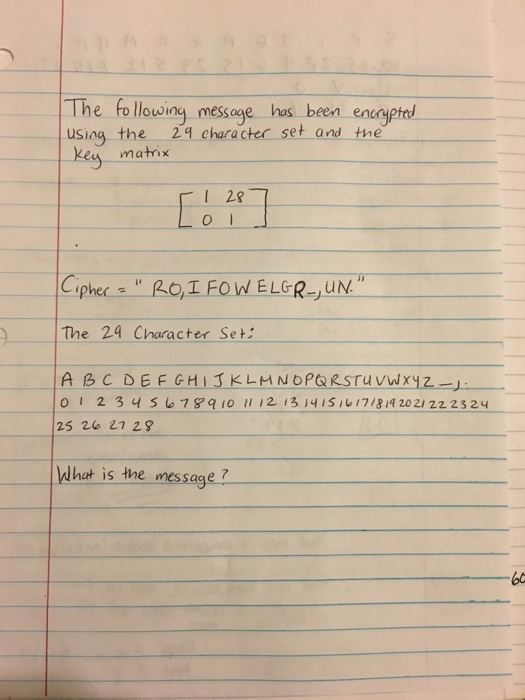 The following message has been encrypted
using the 29 character set and the
key matrix
1 28
0 1
Cipher = " RO,I FOW ELGR_,UN."
The 29 Character Set:
A B C D E F G H I J K L M N O P Q R S T U V W X Y Z _ , .
0 1 2 3 4 5 6 7 8 9 10 11 12 13 14 15 16 17 18 19 20 21 22 23 24
25 26 27 28
What is the message?